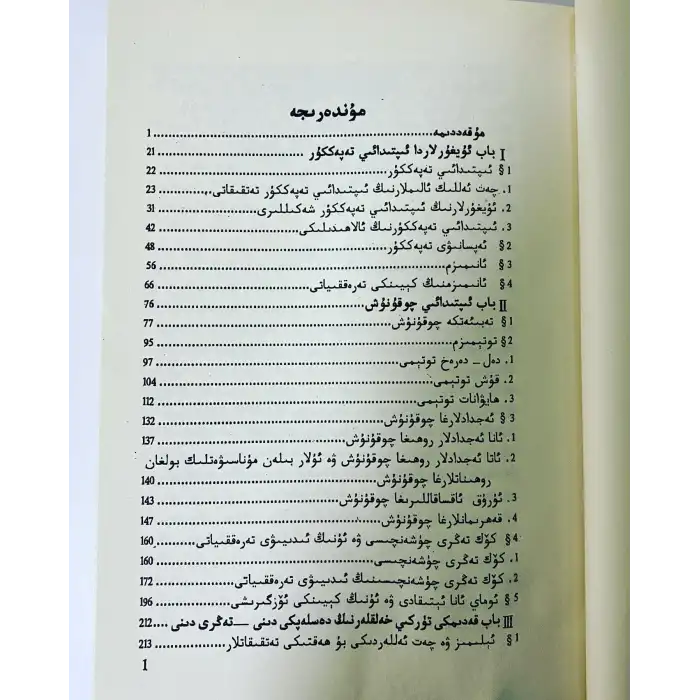 مۇندەرىجە
مۇقەددىمە ........ 1
I باب ئۇيغۇرلاردا ئىپتىدائىي تەپەككۇر ........ 21
§ 1 ئىپتىدائىي تەپەككۇر ........ 22
1. چەت ئەللىك ئالىملارنىڭ ئىپتىدائىي تەپەككۇر تەتقىقاتى ........ 23
2. ئۇيغۇرلارنىڭ ئىپتىدائىي تەپەككۇر شەكىللىرى ........ 31
3. ئىپتىدائىي تەپەككۇرنىڭ ئالاھىدىلىكى ........ 42
§ 2 ئەپسانىۋى تەپەككۇر ........ 48
§ 3 ئانىمىزم ........ 56
§ 4 ئانىمىزمنىڭ كېيىنكى تەرەققىياتى ........ 66
II باب ئىپتىدائىي چوقۇنۇش ........ 76
§ 1 تەبىئەتكە چوقۇنۇش ........ 77
§ 2 توتېمىزم ........ 95
1. دەل – دەرەخ توتېمى ........ 97
2. قۇش توتېمى ........ 104
3. ھايۋانات توتېمى ........ 112
§ 3 ئەجدادلارغا چوقۇنۇش ........ 132
1. ئانا ئەجدادلار روھىغا چوقۇنۇش ........ 137
2. ئاتا ئەجدادلار روھىغا چوقۇنۇش ۋە ئۇلار بىلەن مۇناسىۋەتلىك بولغان
روھىناتلارغا چوقۇنۇش ........ 140
3. ئۇرۇق ئاقساقاللىرىغا چوقۇنۇش ........ 143
4. قەھرىمانلارغا چوقۇنۇش ........ 147
§ 4 كۆك تەڭرى چۈشەنچىسى ۋە ئۇنىڭ ئىدىيىۋى تەرەققىياتى ........ 160
1. كۆك تەڭرى چۈشەنچىسى ........ 160
2. كۆك تەڭرى چۈشەنچىسىنىڭ ئىدىيىۋى تەرەققىياتى ........ 172
§ 5 ئوماي ئانا ئېتىقادى ۋە ئۇنىڭ كېيىنكى ئۆزگىرىشى ........ 196
III باب قەدىمكى تۈركىي خەلقلەرنىڭ دەسلەپكى دىنى — تەڭرى دىنى ........ 212
§ 1 ئېلىمىز ۋە چەت ئەللەردىكى بۇ ھەقتىكى تەتقىقاتلار ........ 213
1